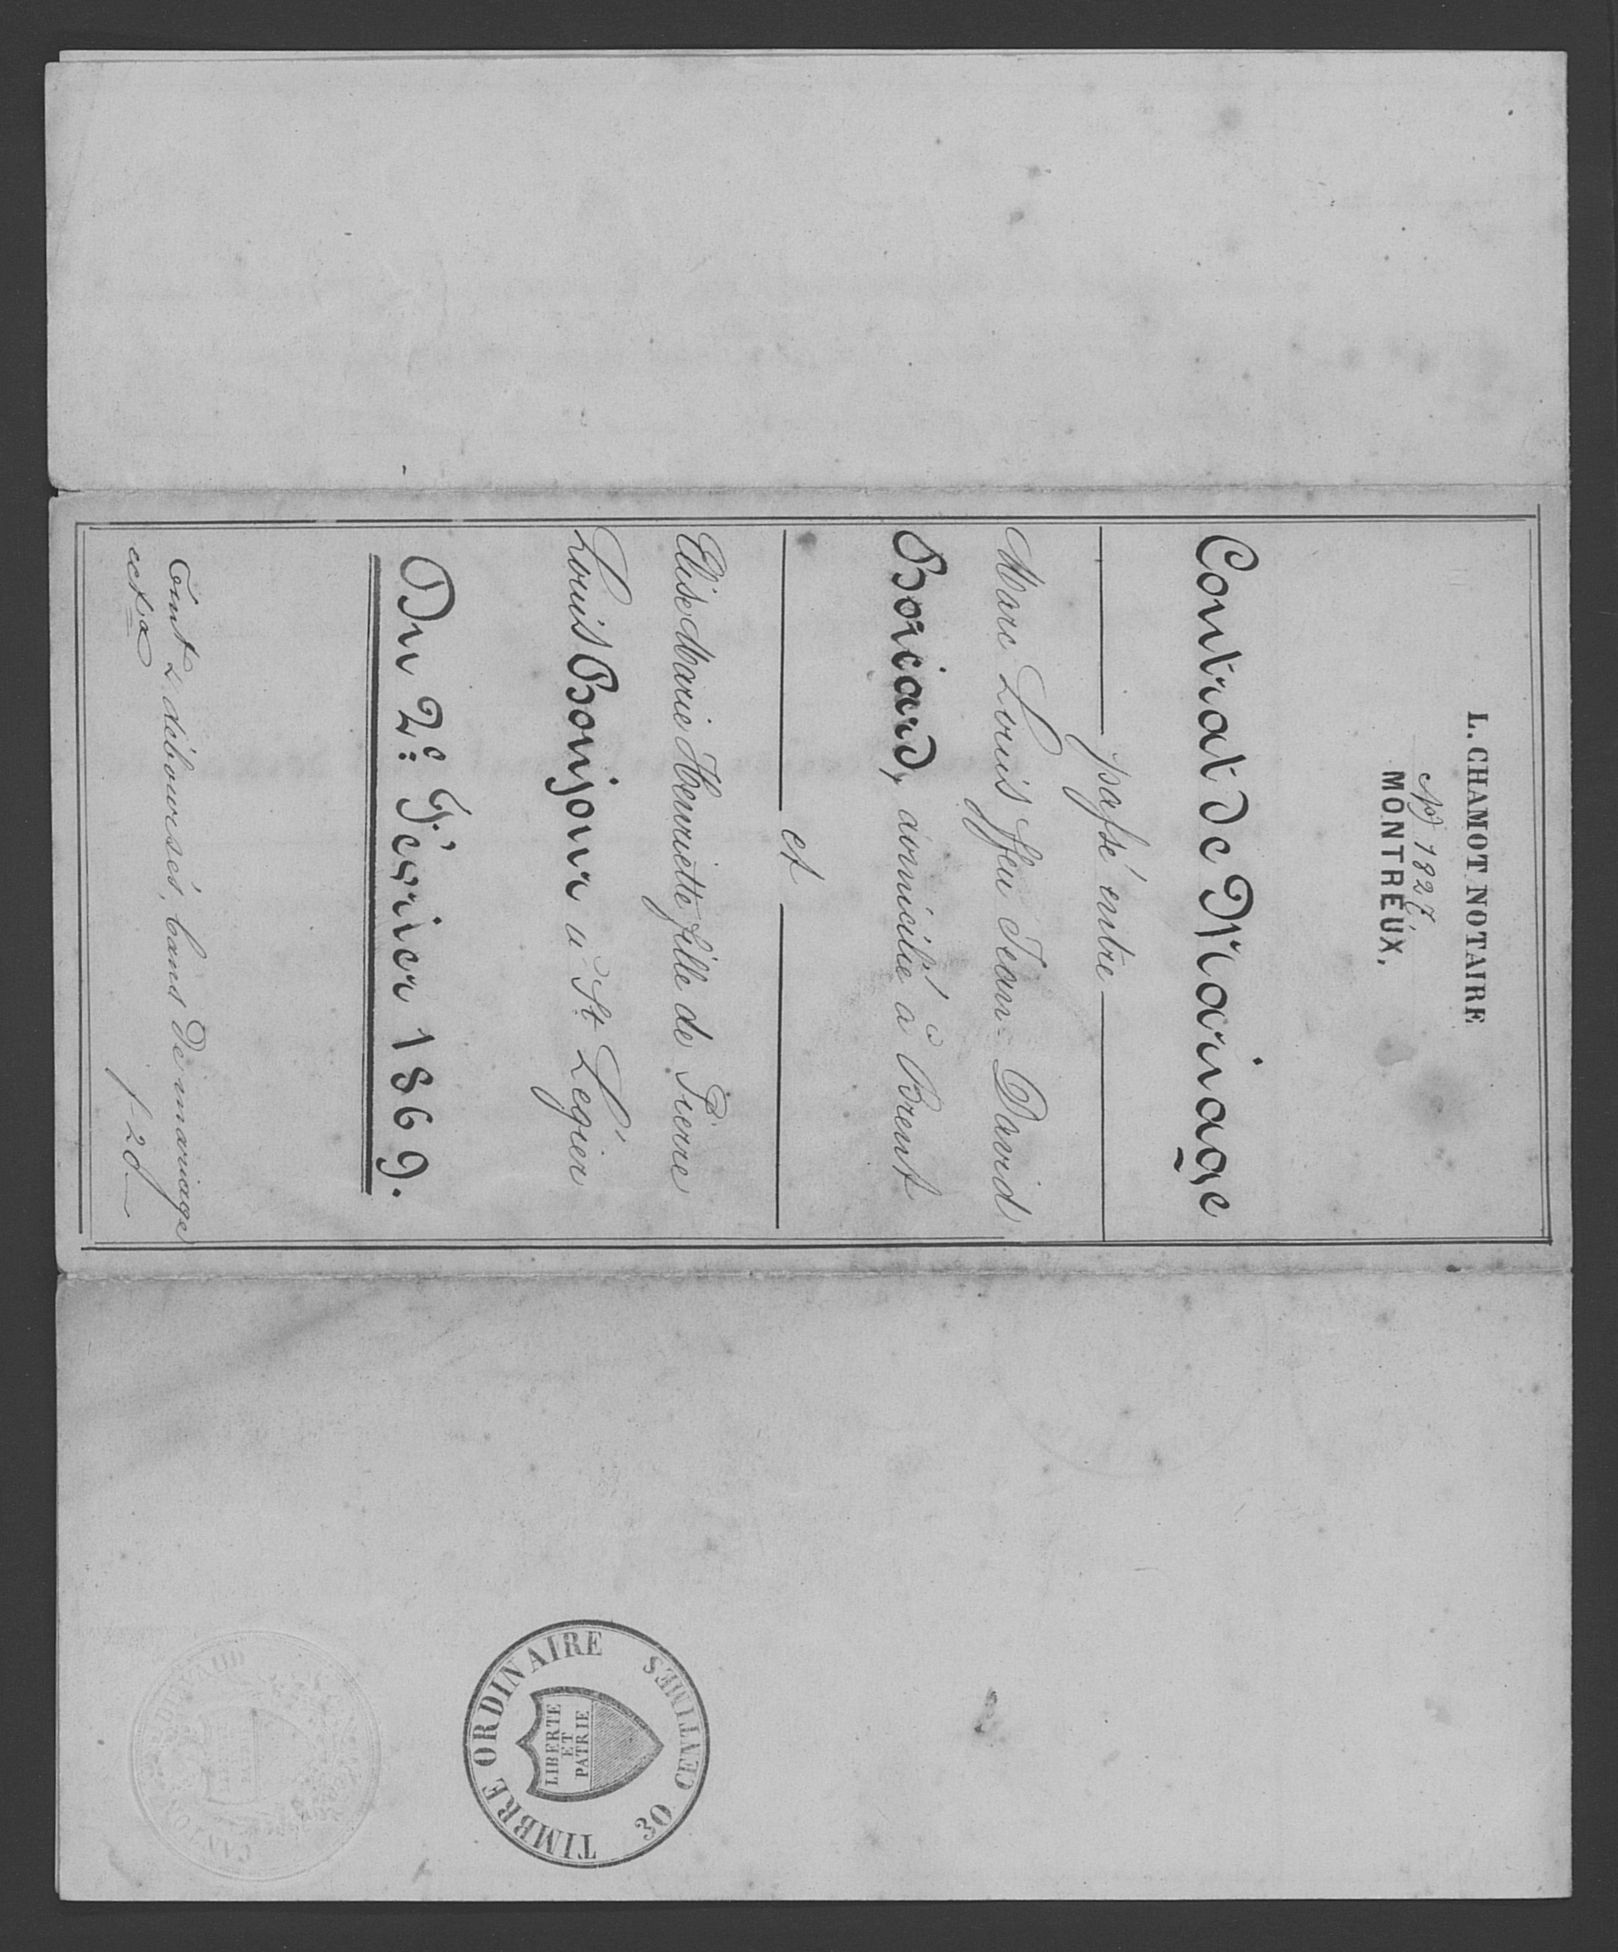 L. CHAMOT NOTAIRE
№ 1827.
MONTREUX.
Contrat de Mariage
passé entre
Marc Louis ffeu Jean-David
Boricard, domicilié à Brent
et
Elise Marie Henriette fille de Pierre
Louis Bonjour à St Légier
Du 2e Février 1869.
débourses, bans de mariage
f 20
TIMBRE ORDINAIRE
30 CENTIMES
LIBERTE
ET
PATRIE
CANTON DE VAUD